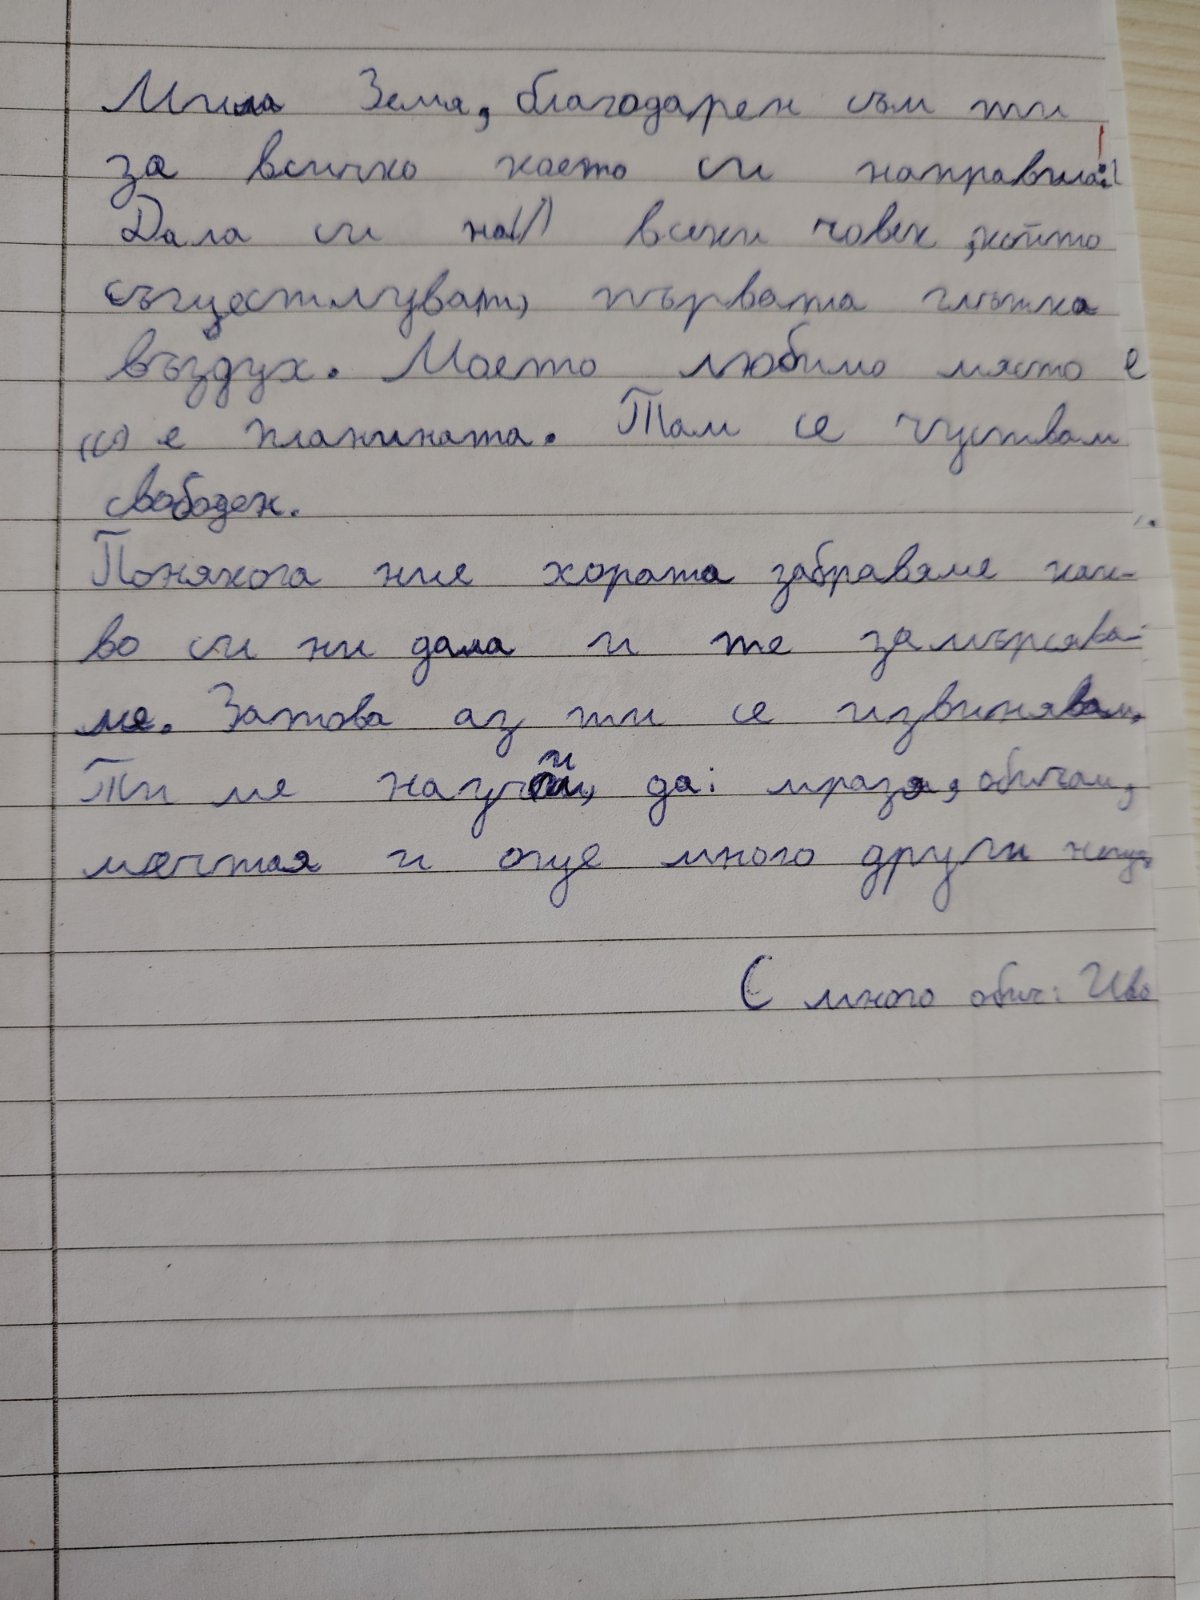 Мила Земя, благодарен съм ти
за всичко което си направила!
Дала си на всеки човек, който
първата глътка
въздух. Моето любимо място е
е планината. Там се чуствам
свободен.
Понякога ние хората забравяме как-
во си ни дала и те замърсява-
ме. Затова аз ти се извинявам.
Ти ме научи, да: мразя, обичам,
мечтая и още много други неща
С много обич: Иво